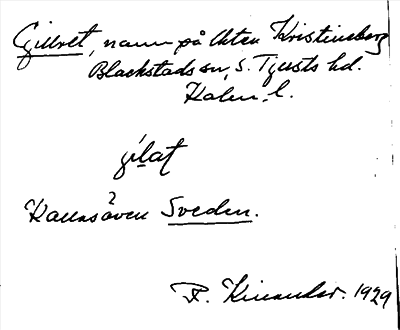 Gillret, namn på åkter Kristineberg
Blackstads sn, S. Tjusts hd.
Kalm. l.
gílat
Kallas även Sveden.
R. Kinander. 1929